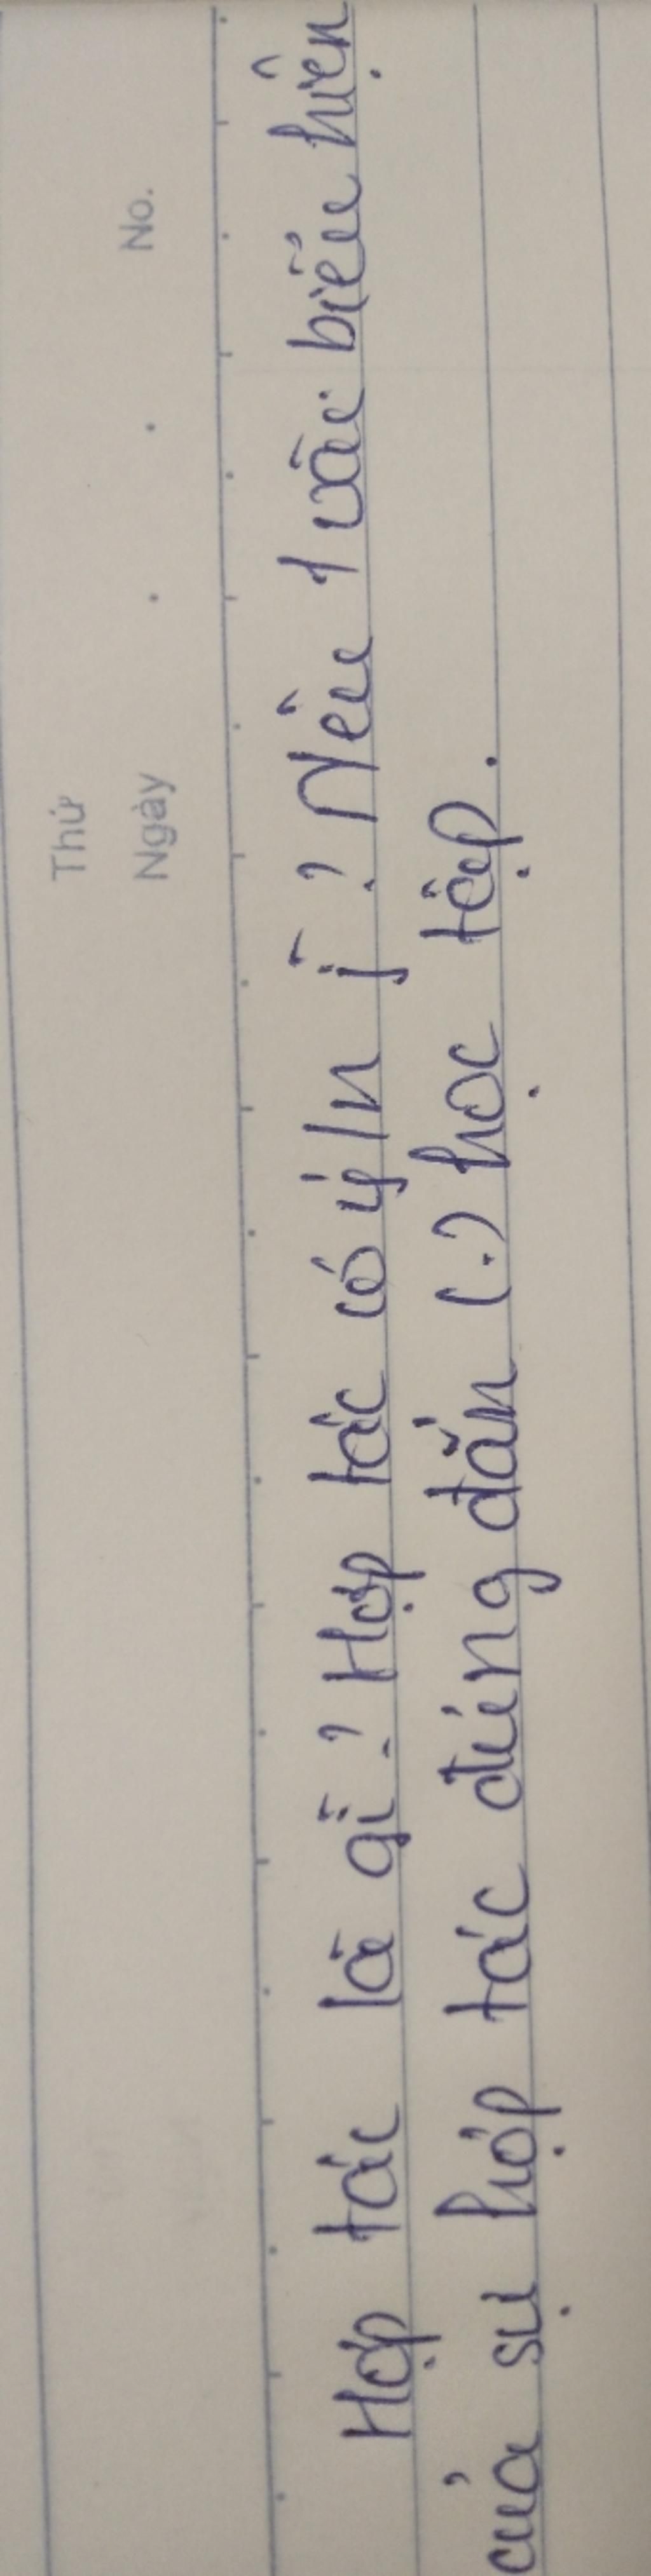 Thứ
Ngày . . No.
Hợp tác là gì? Hợp tác có ý/n j̀? Nêu 1 vài biểu hiện
của sự hợp tác đúng đắn (.) học tập.